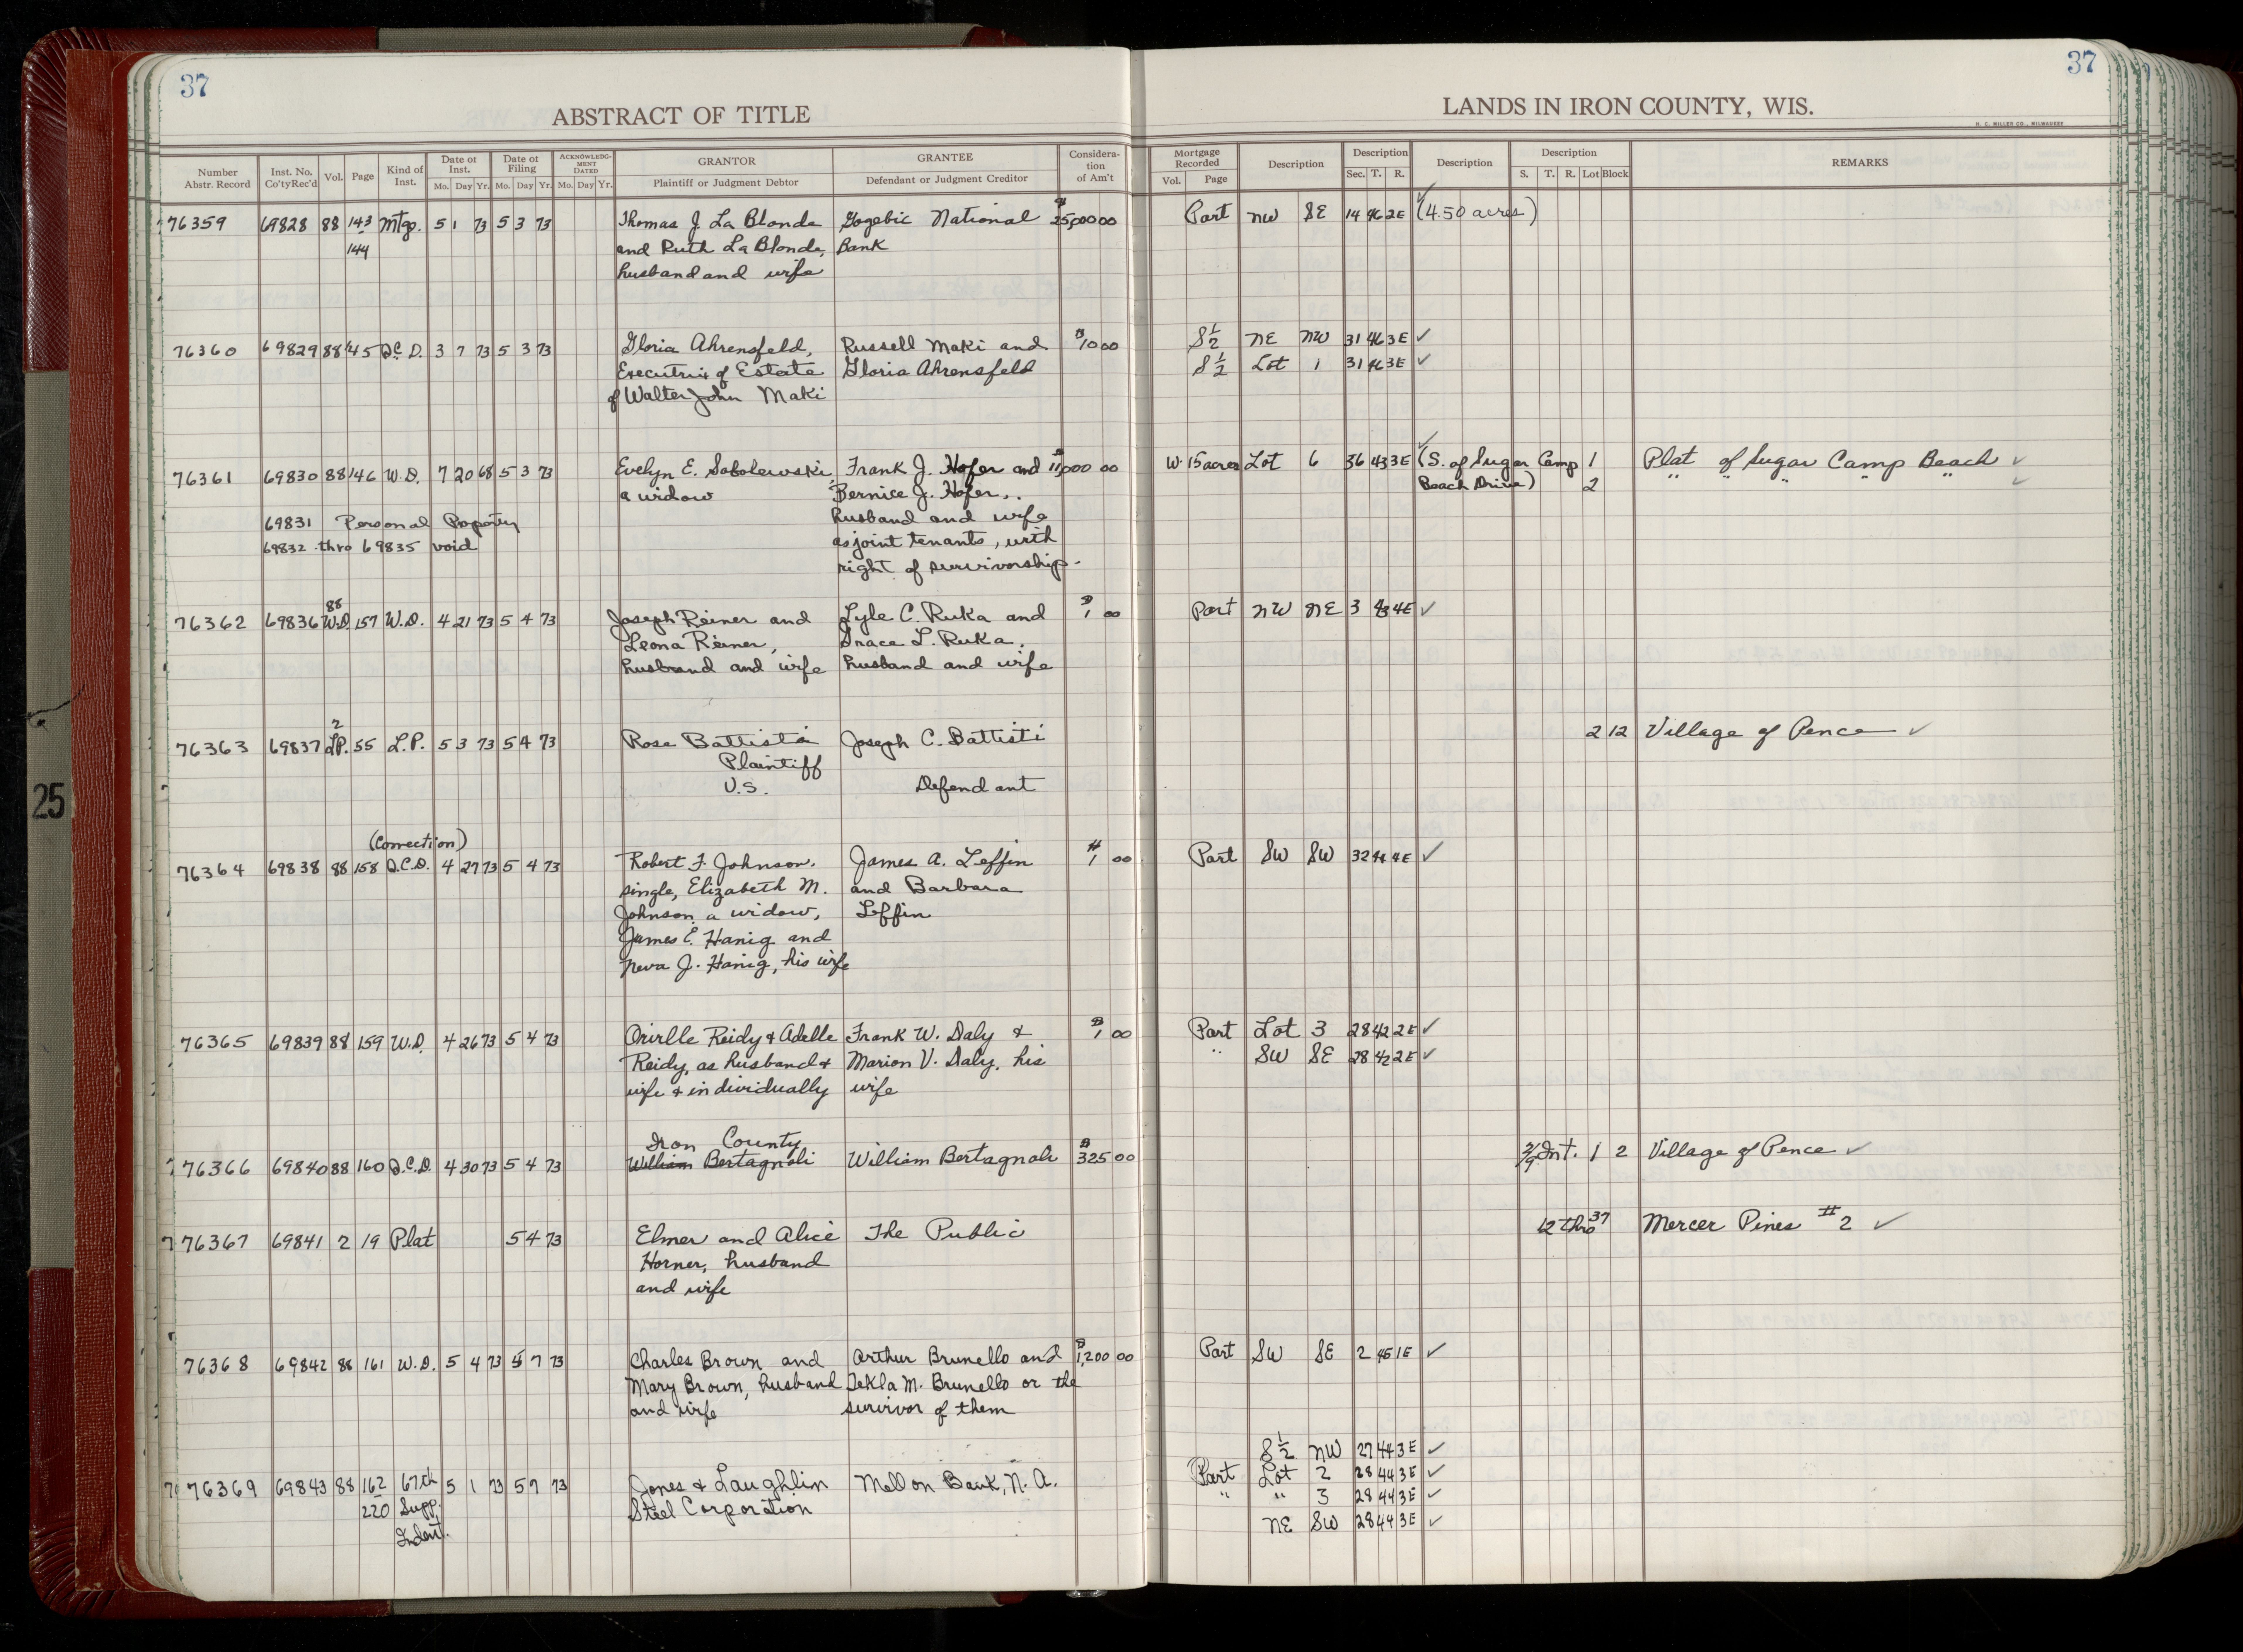 37
37
ABSTRACT OF TITLE
LANDS IN IRON COUNTY, WIS.
H. C. MILLER CO., MILWAUKEE
Number Abstr. Record | Inst. No. Co'ty Rec'd | Vol. | Page | Kind of Inst. | Date of Inst. Mo. Day Yr. | Date of Filing Mo. Day Yr. | ACKNOWLEDGMENT DATED Mo. Day Yr. | GRANTOR Plaintiff or Judgment Debtor | GRANTEE Defendant or Judgment Creditor | Consideration of Am't | Mortgage Recorded Vol. Page | Description | Description Sec. T. R. | Description | Description S. T. R. Lot Block | REMARKS
76359 69828 88 143 Mtg. 5 1 73 5 3 73 Thomas J. La Blonde Gogebic National $25,000 00 Part NW SE 14 46 2E (4.50 acres) ✓
144 and Ruth La Blonde, Bank
husband and wife
76360 69829 88 145 Q.C.D. 3 7 73 5 3 73 Gloria Ahrensfeld, Russell Maki and $10 00 S½ NE NW 31 46 3E ✓
Executrix of Estate Gloria Ahrensfeld S½ Lot 1 31 46 3E ✓
of Walter John Maki
76361 69830 88 146 W.D. 7 20 68 5 3 73 Evelyn E. Sobolewski, Frank J. Hofer and $11,000 00 W. 15 acres Lot 6 36 43 3E (S. of Sugar Camp 1 Plat of Sugar Camp Beach ✓
a widow Bernice J. Hofer, Beach Drive) 2 " " " " " ✓
69831 Personal Property husband and wife
69832 thro 69835 void as joint tenants, with
right of survivorship.
88
76362 69836 W.D. 157 W.D. 4 21 73 5 4 73 Joseph Reiner and Lyle C. Ruka and $1 00 Part NW NE 3 43 4E ✓
Leona Reiner, Grace L. Ruka,
husband and wife husband and wife
2
76363 69837 L.P. 55 L.P. 5 3 73 5 4 73 Rose Battista Joseph C. Battisti 2 12 Village of Pence ✓
Plaintiff
V.S. Defendant
(Correction)
76364 69838 88 158 Q.C.D. 4 27 73 5 4 73 Robert F. Johnson, James A. Leffin $1 00 Part SW SW 32 44 4E ✓
single, Elizabeth M. and Barbara
Johnson a widow, Leffin
James E. Hanig and
Neva J. Hanig, his wife
76365 69839 88 159 W.D. 4 26 73 5 4 73 Orville Reidy & Adelle Frank W. Daly & $1 00 Part Lot 3 28 42 2E ✓
Reidy, as husband & Marion V. Daly, his " SW SE 28 42 2E ✓
wife & individually wife
Iron County
76366 69840 88 160 Q.C.D. 4 30 73 5 4 73 William Bertagnoli William Bertagnoli $325 00 2/9 Int. 1 2 Village of Pence ✓
76367 69841 2 19 Plat 5 4 73 Elmer and Alice The Public 12 thro 37 Mercer Pines #2 ✓
Horner, husband
and wife
76368 69842 88 161 W.D. 5 4 73 5 7 73 Charles Brown and Arthur Brunello and $1,200 00 Part SW SE 2 45 1E ✓
Mary Brown, husband Tekla M. Brunello or the
and wife survivor of them
S½ NW 27 44 3E ✓
76369 69843 88 162 67th 5 1 73 5 7 73 Jones & Laughlin Mellon Bank, N.A. Part Lot 2 28 44 3E ✓
220 Supp. Steel Corporation " " 3 28 44 3E ✓
Indent. NE SW 28 44 3E ✓
25